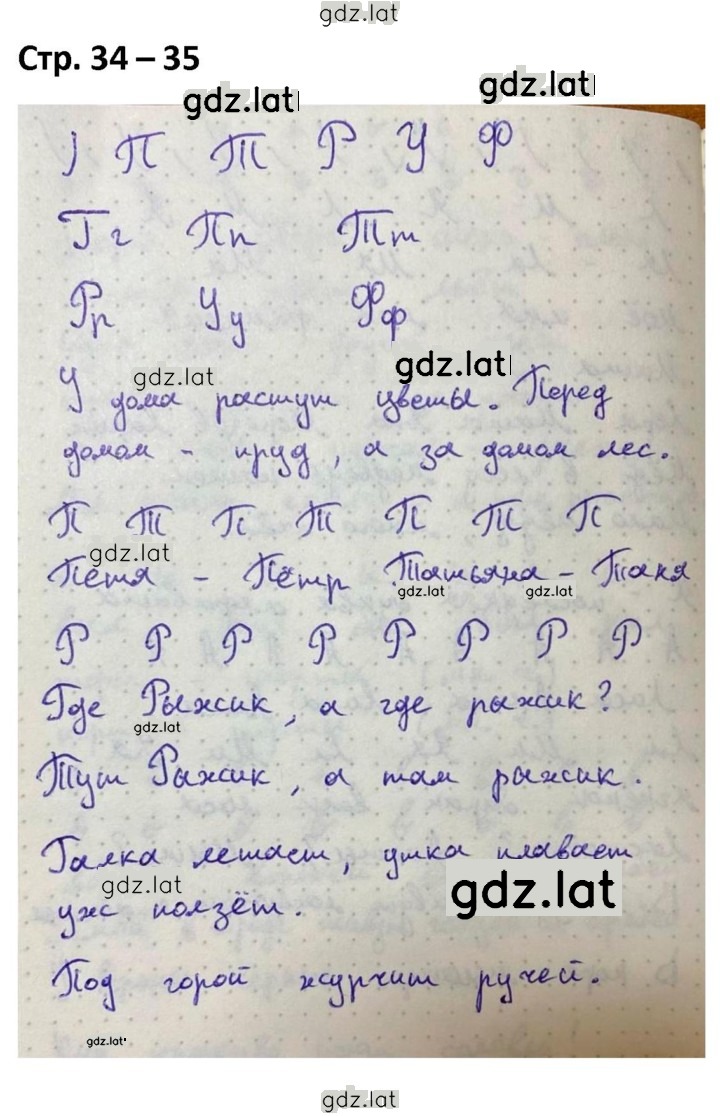 gdz.lat
Стр. 34 – 35
gdz.lat gdz.lat
П Т Р У Ф
Гг Пп Тт
Рр Уу Фф
gdz.lat gdz.lat
У дома растут цветы. Перед
домом - пруд, а за домом лес.
П Т П Т П Т П
gdz.lat
Петя - Пётр Татьяна - Таня
gdz.lat gdz.lat
Р Р Р Р Р Р Р Р
Где Рыжик, а где рыжик?
gdz.lat
Тут Рыжик, а там рыжик.
Галка летает, утка плавает
gdz.lat gdz.lat
уж ползёт.
Под горой журчит ручей.
gdz.lat
gdz.lat